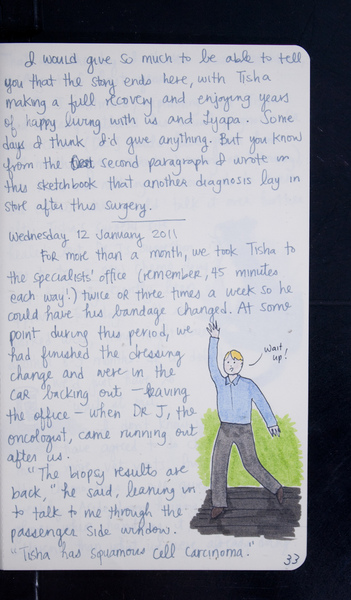 I would give so much to be able to tell
you that the story ends here, with Tisha
making a full recovery and enjoying years
of happy living with us and Iyapa. Some
days I think I'd give anything. But you know
from the second paragraph I wrote in
this sketchbook that another diagnosis lay in
store after this surgery.
Wednesday 12 January 2011
For more than a month, we took Tisha to
the specialists' office (remember, 45 minutes
each way!) twice or three times a week so he
could have his bandage changed. At some
point during this period, we
had finished the dressing
change and were in the
car backing out – leaving
the office – when Dr J, the
oncologist, came running out
after us.
Wait up!
"The biopsy results are
back," he said, leaning in
to talk to me through the
passenger side window.
"Tisha has squamous cell carcinoma."
33